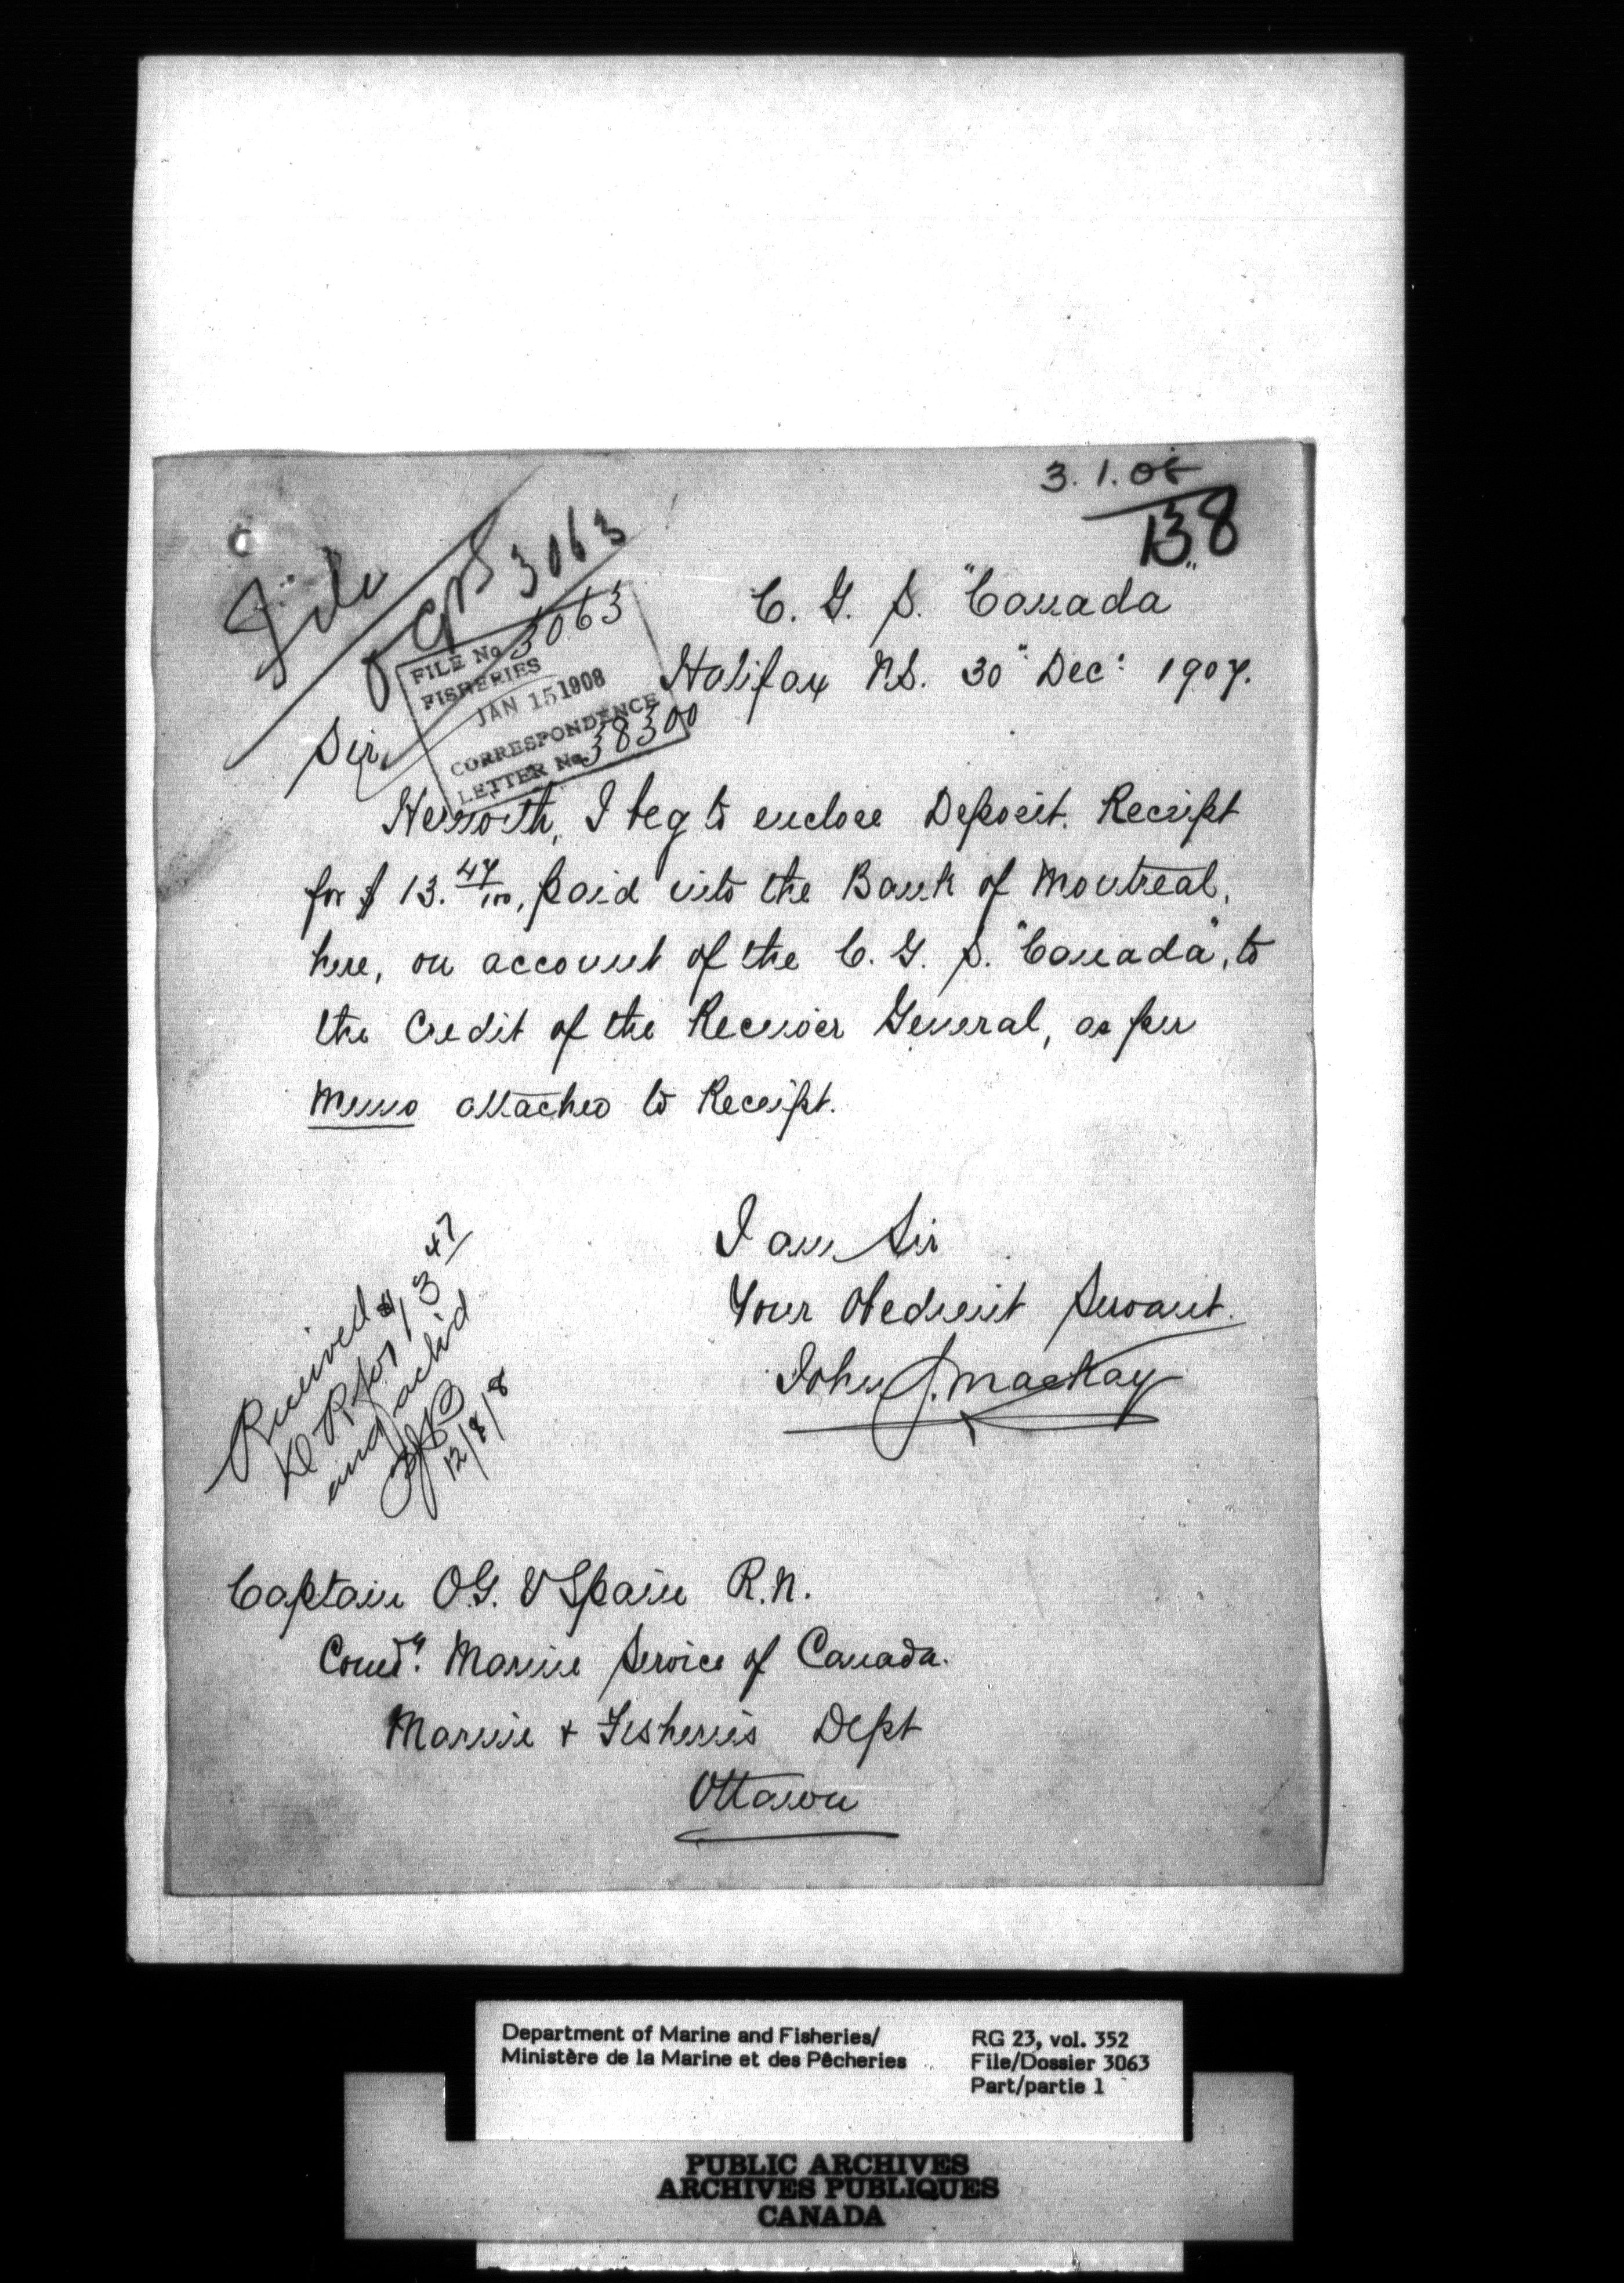 3.1.08
138
File
3063
FILE No 3063
FISHERIES
JAN 15 1908
CORRESPONDENCE
LETTER No. 38300
C. G. S. "Canada"
Halifax N.S. 30" Dec: 1907.
Sir,
Herewith, I beg to enclose Deposit. Receipt
for $ 13. 47/100, paid into the Bank of Montreal,
here, on account of the C. G. S. "Canada", to
the Credit of the Receiver General, as per
Memo attached to Receipt.
I am Sir
Your Obedient Servant.
John J. MacKay
Received
D R for $13 47
and ackd
12/8/8
Captain O.G. V Spain R.N.
Comdr. Marine Service of Canada.
Marine + Fisheries Dept
Ottawa
Department of Marine and Fisheries/
Ministère de la Marine et des Pêcheries
RG 23, vol. 352
File/Dossier 3063
Part/partie 1
PUBLIC ARCHIVES
ARCHIVES PUBLIQUES
CANADA